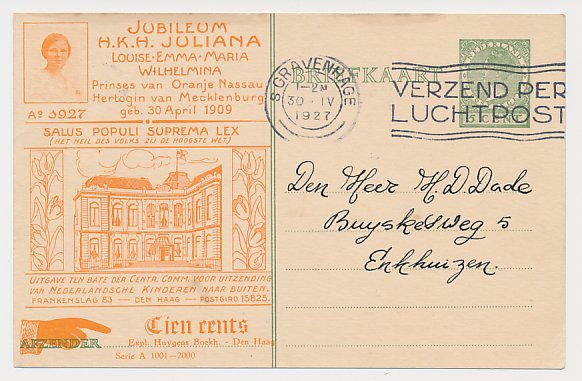 JUBILEUM
H.K.H. JULIANA
LOUISE·EMMA·MARIA
WILHELMINA
Prinses van Oranje Nassau
Hertogin van Mecklenburg
geb. 30 April 1909
Aº 1927
SALUS POPULI SUPREMA LEX
(HET HEIL DES VOLKS ZIJ DE HOOGSTE WET)
UITGAVE TEN BATE DER CENTR. COMM. VOOR UITZENDING
VAN NEDERLANDSCHE KINDEREN NAAR BUITEN.
FRANKENSLAG 83 — DEN HAAG — POSTGIRO 15825.
Tien cents
AFZENDER
Expl. Huygens Boekh. - Den Haag
Serie A 1001—2000
BRIEFKAART
NEDERLAND
CENT
'S GRAVENHAGE
1-2N
30·IV
1927
VERZEND PER
LUCHTPOST
Den Heer H.D. Dade
Buyskesweg 5
Enkhuizen.